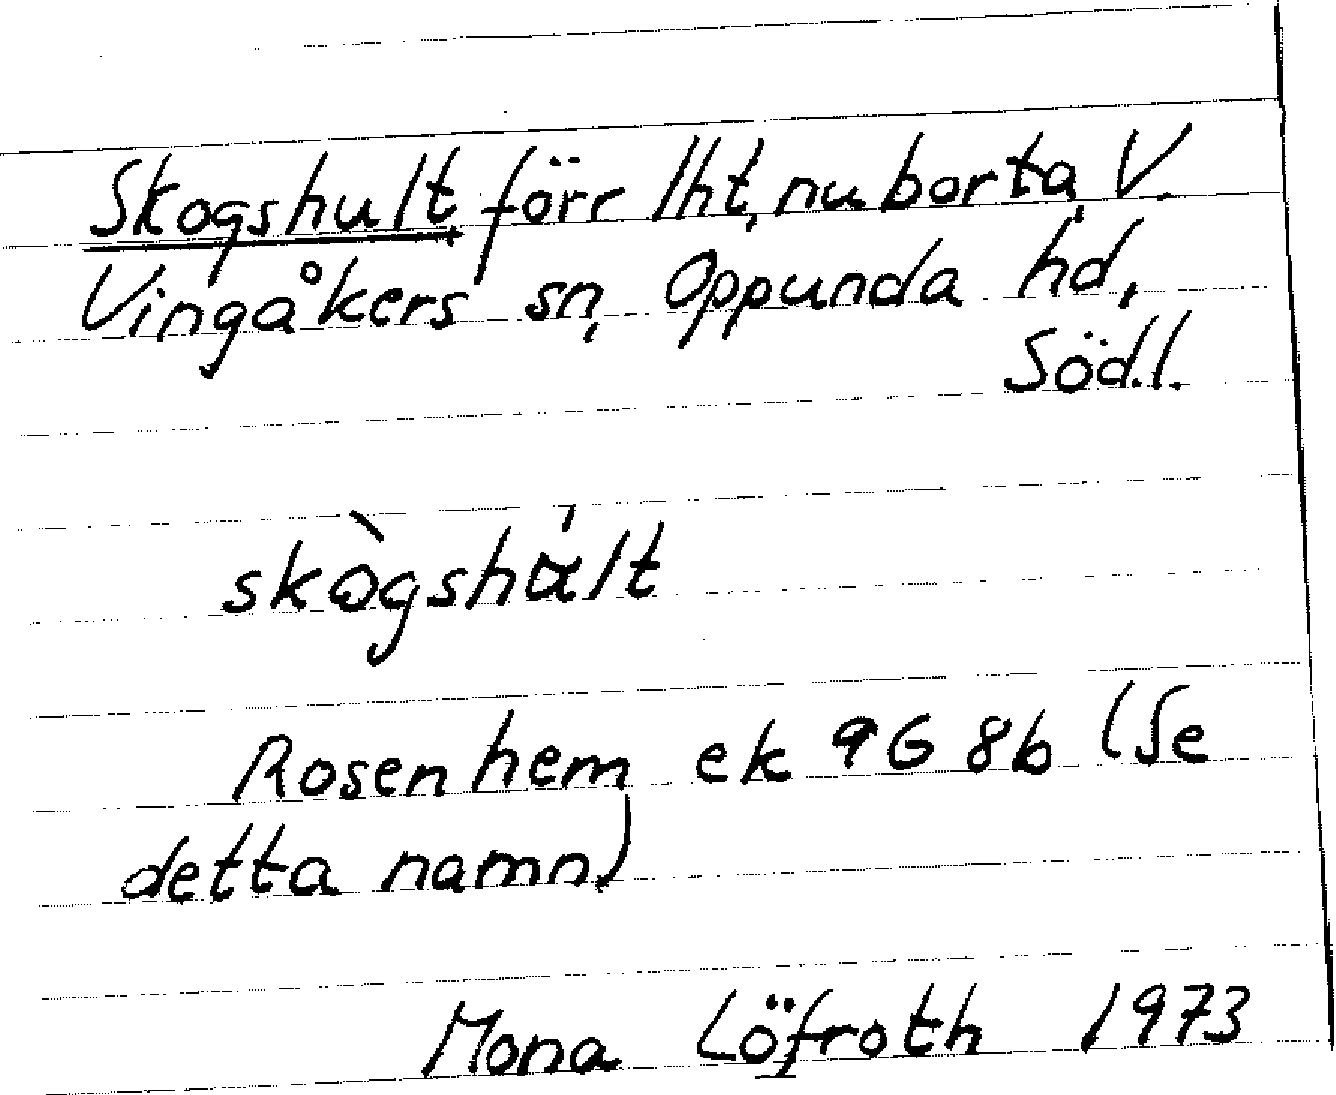 Skogshult förr lht, nu borta, V.
Vingåkers sn, Oppunda hd,
Söd.l.
skògshált
Rosenhem ek 9G 8b (Se
detta namn)
Mona Löfroth 1973